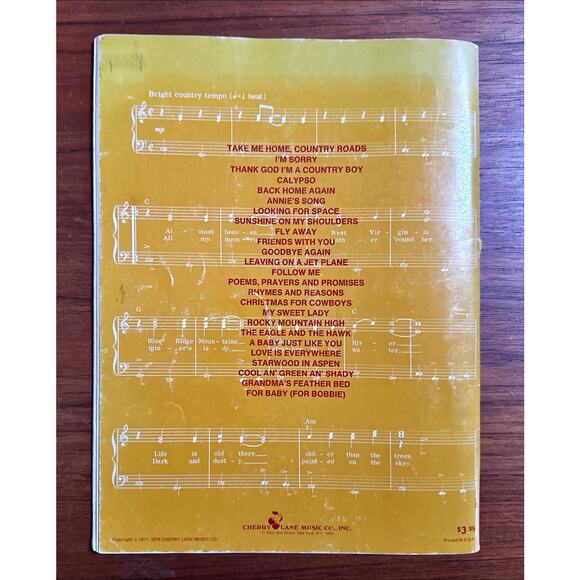 Bright country tempo (♩=1 beat)
mp
TAKE ME HOME, COUNTRY ROADS
I'M SORRY
THANK GOD I'M A COUNTRY BOY
CALYPSO
BACK HOME AGAIN
ANNIE'S SONG
LOOKING FOR SPACE
SUNSHINE ON MY SHOULDERS
FLY AWAY
FRIENDS WITH YOU
GOODBYE AGAIN
LEAVING ON A JET PLANE
FOLLOW ME
POEMS, PRAYERS AND PROMISES
RHYMES AND REASONS
CHRISTMAS FOR COWBOYS
MY SWEET LADY
ROCKY MOUNTAIN HIGH
THE EAGLE AND THE HAWK
A BABY JUST LIKE YOU
LOVE IS EVERYWHERE
STARWOOD IN ASPEN
COOL AN' GREEN AN' SHADY
GRANDMA'S FEATHER BED
FOR BABY (FOR BOBBIE)
C
Al - most heaven, West Vir - gin - is
All my mem - 'round her
G C
Blue Ridge Moun - tains Riv - er
min - er's la - dy wa - ter
Am
Life is old there older than the trees
Dark and dusty, painted on the sky
CHERRY LANE MUSIC CO., INC.
Copyright © 1971, 1976 CHERRY LANE MUSIC CO.
$3.95
Printed in U.S.A.